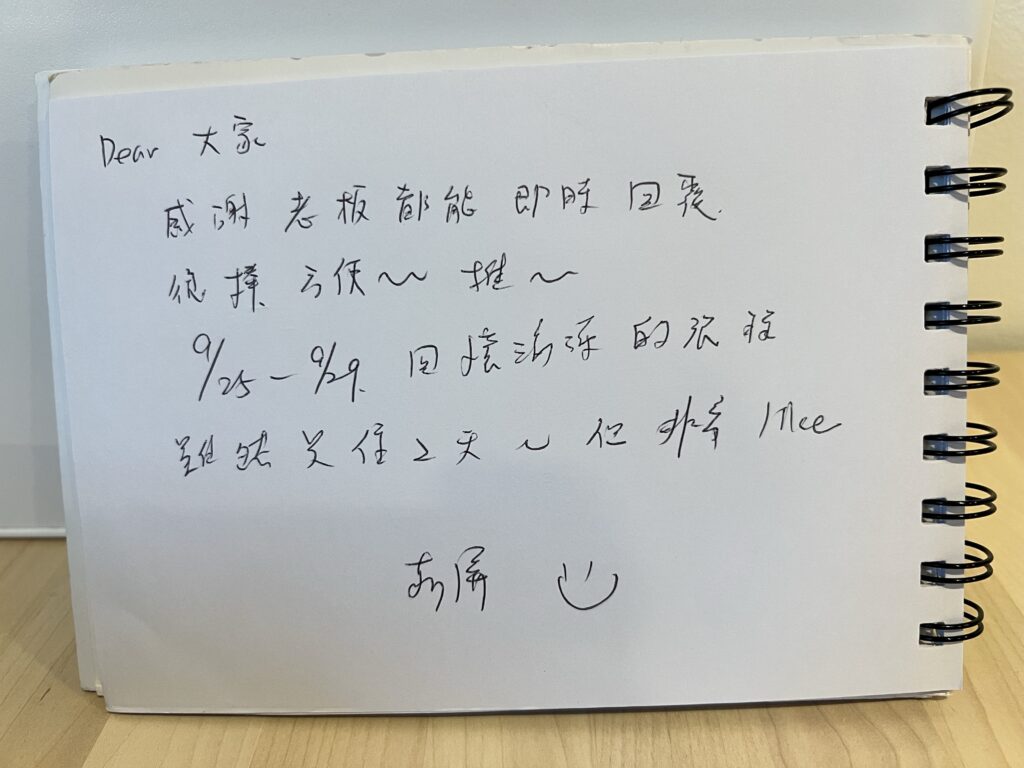 Dear 大家
感謝 老板都能 即時 回覆
很棒 方便～ 推～
9/25－9/29 回憶滿滿 的旅程
雖然只住2天～ 但 非常 nice
屏